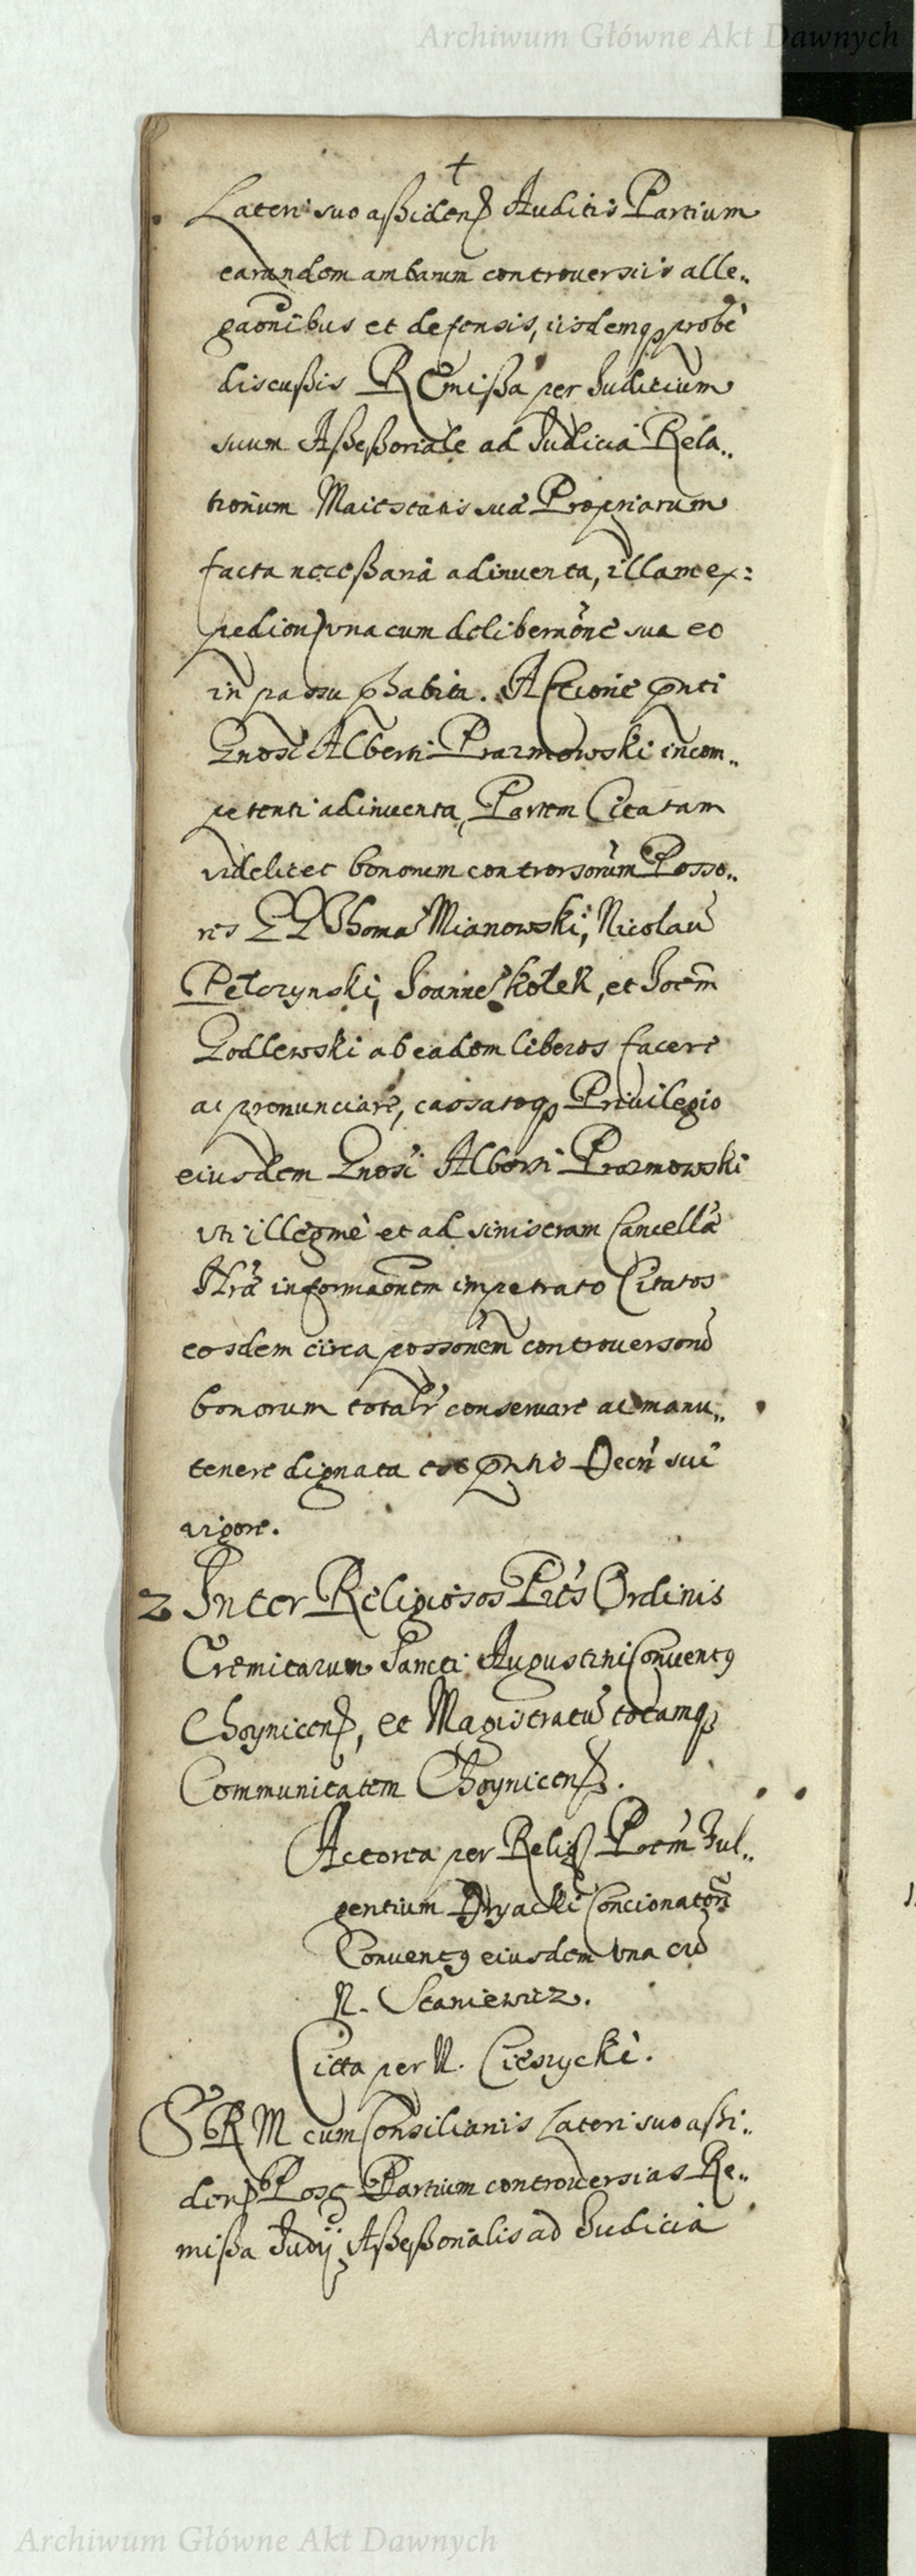 Archiwum Główne Akt Dawnych
+
Lateri suo aßidenß Auditis Partium
earundem ambarum controversiis alle„
gaõnibus et defensis, iisdemqꝫ probè
discußis REmißa per Iuditium
suum Aßeßoriale ad Iudicia Rela„
tionum Maiestatis suæ Propriarum
facta necessaria adinventa, illam ex:
pedien) vna cum deliberaõne sua eo
in passu habita. Actione pñti
Gnosi Alberti Prazmowski incom„
petenti adinventa, Partem Citatam
videlicet bonorum controrsorum Posso„
res GG Thomã Mianowski, Nicolaũ
Pełczynski, Joannẽ Kołek, et Joem̃
Godlewski ab eadem liberos facere
ac pronunciare, cassatoqꝫ Privilegio
eiusdem Gnosi Alberti Prazmowski
vti illegmè et ad sinistram Cancellã
Nrã informaõnem impetrato Citatos
eosdem circa possõnem controversorũ
bonorum totalr conservare ac manu„
tenere dignata est pñtis Decri sui
vigore.
2 Inter Religiosos Pr̃es Ordinis
Eremitarum Sancti Augustini Conventꝯ
Choynicenß, et Magistratũ totamqꝫ
Communitatem Choynicenß.
Actorea per Religß Patrem Ful„
gentium Dryacki Concionatorẽ
Conventꝯ eiusdem vna cũ
N. Staniewicz.
Citta per N. Cieszycki.
S R M cum Consiliariis Lateri suo aßi„
denß Post Partium controversias Re„
mißa Judij Aßeßorialis ad Iudicia
Archiwum Główne Akt Dawnych